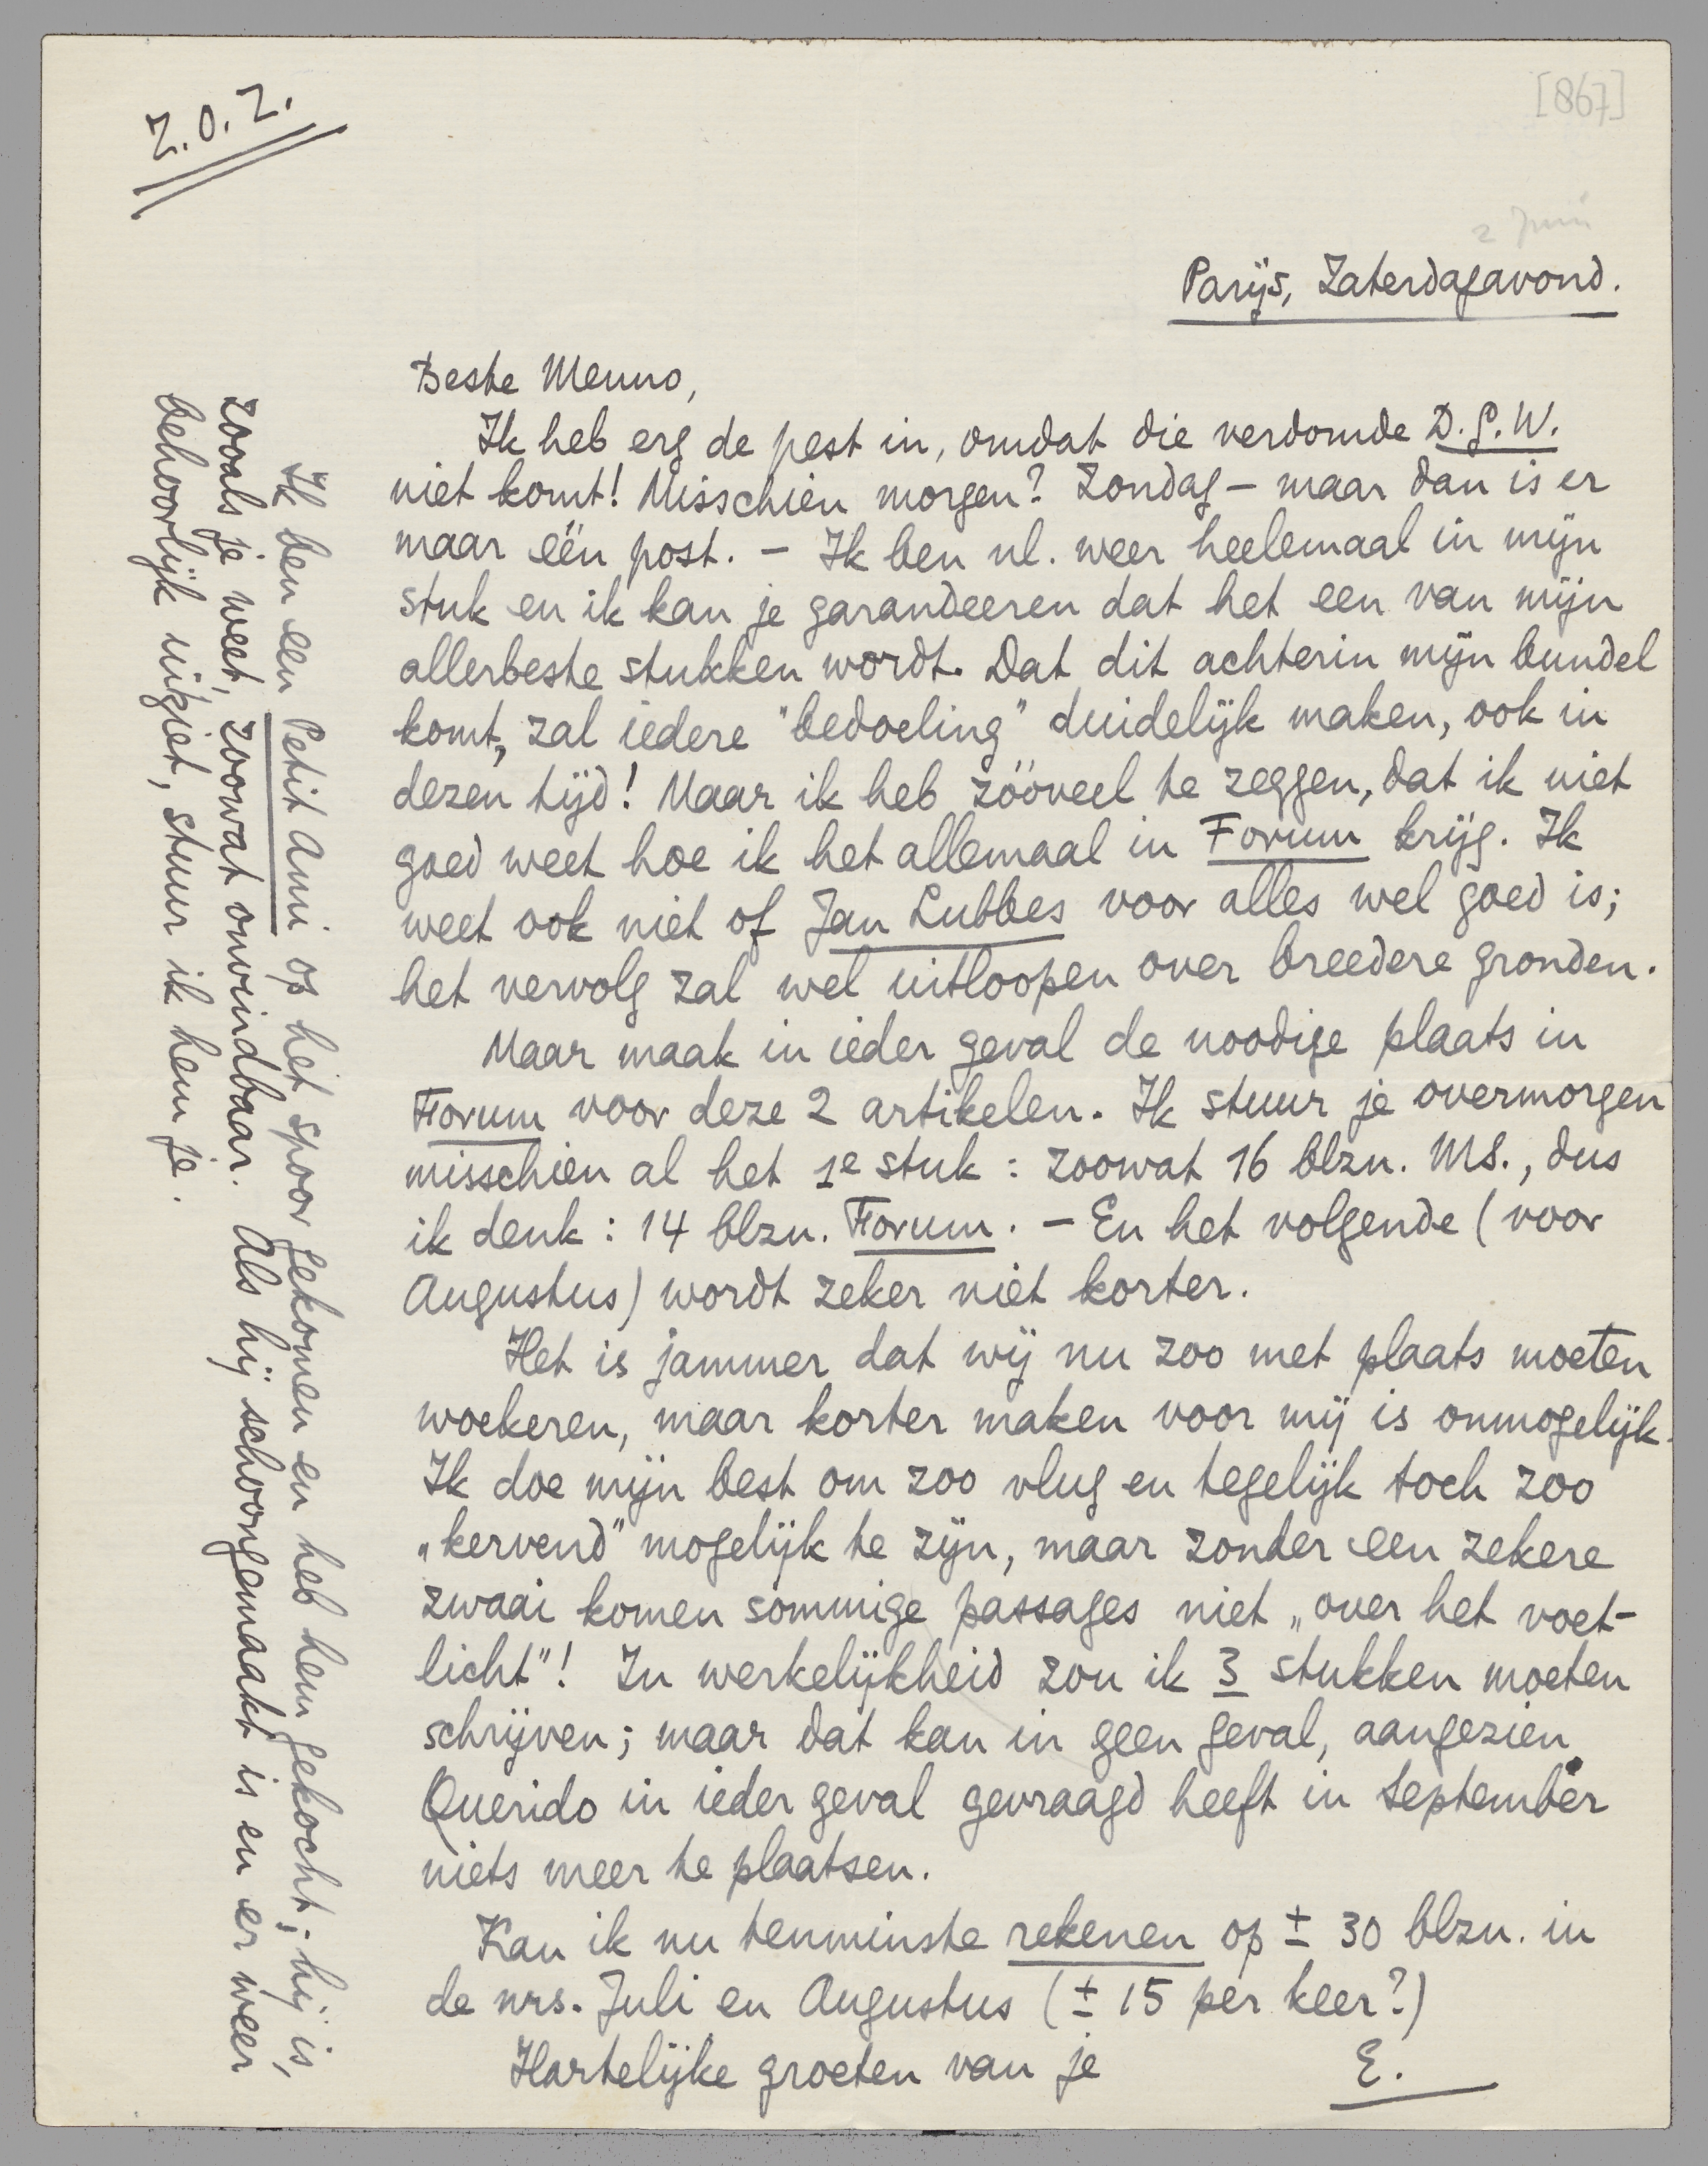 Z.O.Z.
[867]
2 Juni
Parijs, Zaterdagavond.
Beste Menno,
Ik heb erg de pest in, omdat die verdomde D.G.W.
niet komt! Misschien morgen? Zondag – maar dan is er
maar één post. – Ik ben nl. weer heelemaal in mijn
stuk en ik kan je garandeeren dat het een van mijn
allerbeste stukken wordt. Dat dit achterin mijn bundel
komt, zal iedere "bedoeling" duidelijk maken, ook in
dezen tijd! Maar ik heb zóóveel te zeggen, dat ik niet
goed weet hoe ik het allemaal in Forum krijg. Ik
weet ook niet of Jan Lubbes voor alles wel goed is;
het vervolg zal wel uitloopen over breedere gronden.
Maar maak in ieder geval de noodige plaats in
Forum voor deze 2 artikelen. Ik stuur je overmorgen
misschien al het 1e stuk: zoowat 16 blzn. MS., dus
ik denk: 14 blzn. Forum. – En het volgende (voor
Augustus) wordt zeker niet korter.
Het is jammer dat wij nu zoo met plaats moeten
woekeren, maar korter maken voor mij is onmogelijk.
Ik doe mijn best om zoo vlug en tegelijk toch zoo
„kervend" mogelijk te zijn, maar zonder een zekere
zwaai komen sommige passages niet „over het voet-
licht"! In werkelijkheid zou ik 3 stukken moeten
schrijven; maar dat kan in geen geval, aangezien
Querido in ieder geval gevraagd heeft in September
niets meer te plaatsen.
Kan ik nu tenminste rekenen op ± 30 blzn. in
de nrs. Juli en Augustus (± 15 per keer?)
Hartelijke groeten van je E.
Ik ben een Petit Ami op het spoor gekomen en heb hem gekocht; hij is,
zooals je weet, zoowat onvindbaar. Als hij schoongemaakt is en er weer
behoorlijk uitziet, stuur ik hem je.